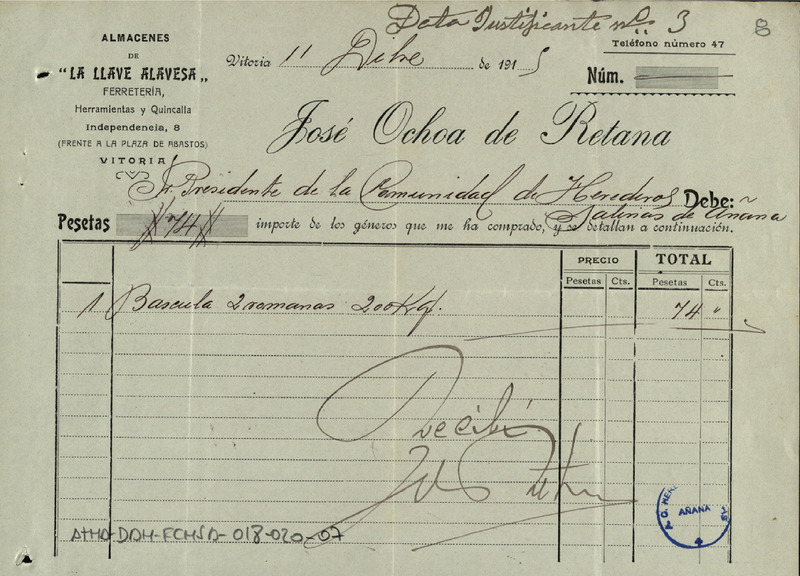 Data Justificante nº 3
8
ALMACENES
DE
"LA LLAVE ALAVESA„
FERRETERÍA,
Herramientas y Quincalla
Independencia, 8
(FRENTE A LA PLAZA DE ABASTOS)
VITORIA
Teléfono número 47
Vitoria 11 Dbre de 1915
Núm.
José Ochoa de Retana
Sr. Presidente de la Comunidad de Herederos Debe:
Salinas de Añana
Pesetas 74 importe de los géneros que me ha comprado, y se detallan a continuación.
PRECIO TOTAL
Pesetas Cts. Pesetas Cts.
1 Bascula 2 romanas 200 Kg. 74 "
Recibí
AÑANA
ATHA-DAH-FCHSA-018-020-07